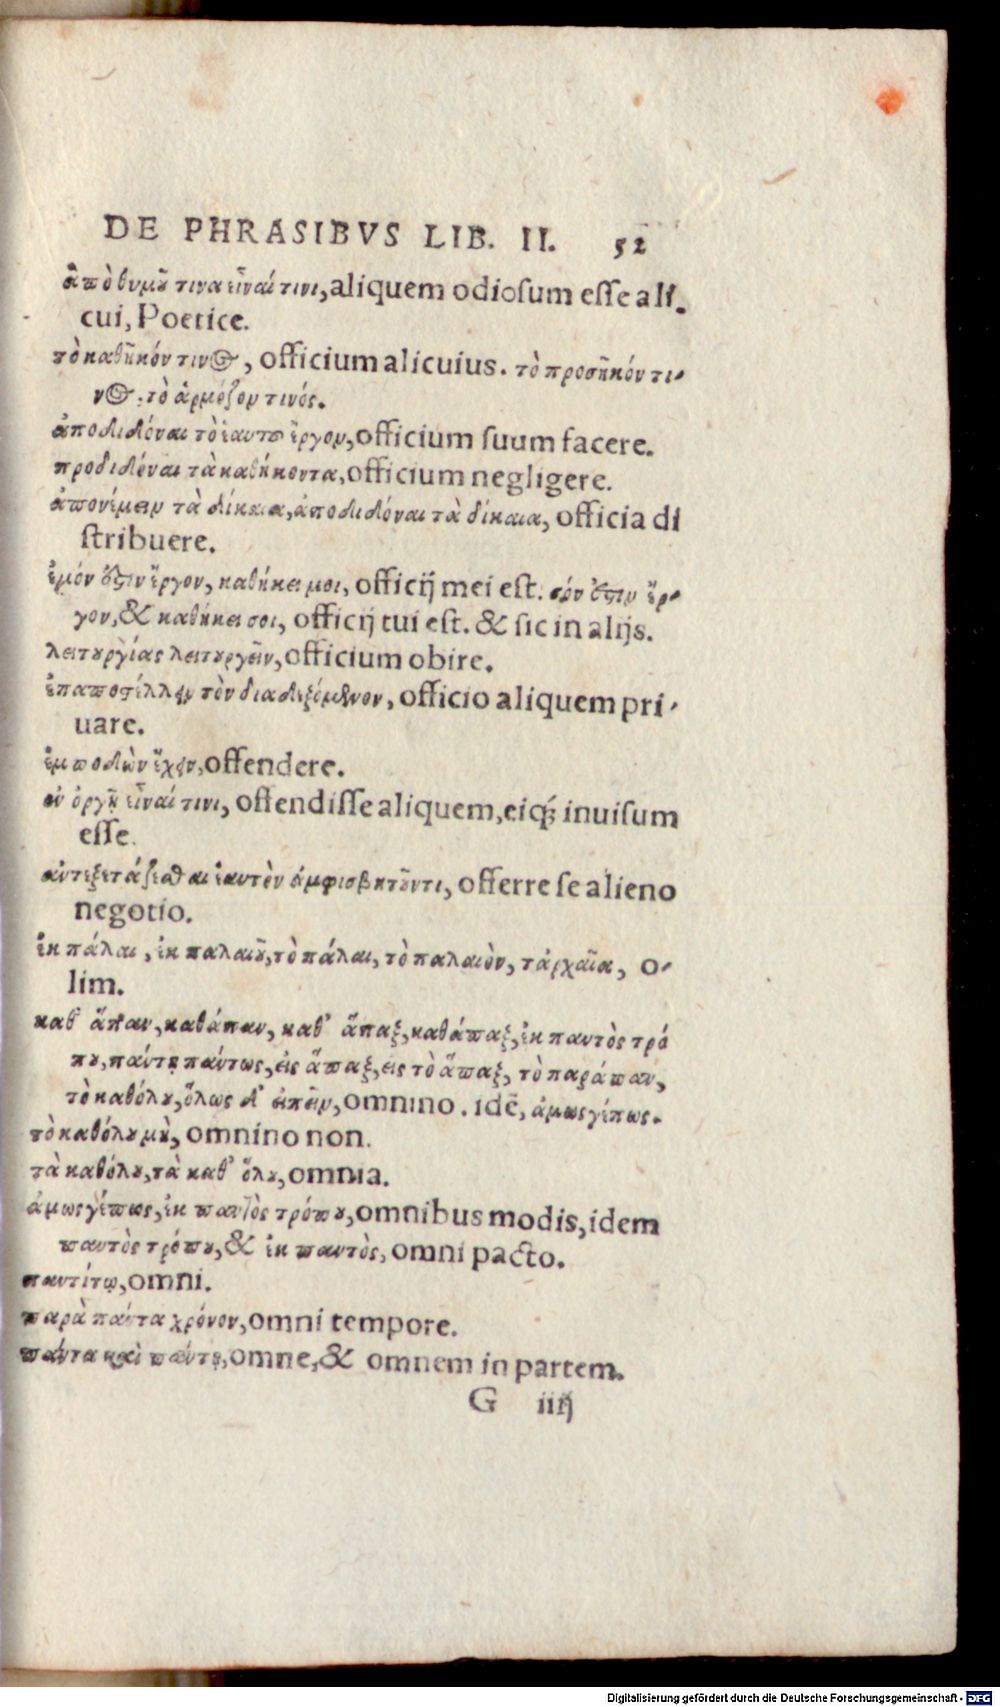 DE PHRASIBVS LIB. II. 52
ἀπὸ θυμοῦ τινα εἶναί τινι, aliquem odiosum esse ali-
cui, Poetice.
τὸ καθῆκόν τινος, officium alicuius. τὸ προσῆκόν τι-
νος. τὸ ἁρμόζον τινός.
ἀποδιδόναι τὸ ἑαυτοῦ ἔργον, officium suum facere.
προδιδόναι τὰ καθήκοντα, officium negligere.
ἀπονέμειν τὰ δίκαια, ἀποδιδόναι τὰ δίκαια, officia di
stribuere.
ἐμόν ἐστιν ἔργον, καθήκει μοι, officij mei est. σόν ἐστιν ἔρ-
γον, & καθήκει σοι, officij tui est. & sic in alijs.
λειτουργίας λειτουργεῖν, officium obire.
ἐπαποστέλλειν τὸν διαδεξόμενον, officio aliquem pri-
uare.
ἐμποδὼν ἔχειν, offendere.
ἐν ὀργῇ εἶναί τινι, offendisse aliquem, eiq́; inuisum
esse.
ἀντεξετάζεσθαι ἑαυτὸν ἀμφισβητοῦντι, offerre se alieno
negotio.
ἐκ πάλαι, ἐκ παλαιοῦ, τὸ πάλαι, τὸ παλαιὸν, τἀρχαῖα, o-
lim.
καθ' ἅπαν, καθάπαν, καθ' ἅπαξ, καθάπαξ, ἐκ παντὸς τρό
που, πάντῃ πάντως, εἰς ἅπαξ, εἰς τὸ ἅπαξ, τὸ παράπαν,
τὸ καθόλου, ὅλως δ' εἰπεῖν, omnino. idẽ, ἁμωσγέπως.
τὸ καθόλου μὴ, omnino non.
τὰ καθόλου, τὰ καθ' ὅλου, omnia.
ἁμωσγέπως, ἐκ παντὸς τρόπου, omnibus modis, idem
παντὸς τρόπου, & ἐκ παντὸς, omni pacto.
παντί τῳ, omni.
παρὰ πάντα χρόνον, omni tempore.
πάντα καὶ πάντῃ, omne, & omnem in partem.
G iiij
Digitalisierung gefördert durch die Deutsche Forschungsgemeinschaft - DFG